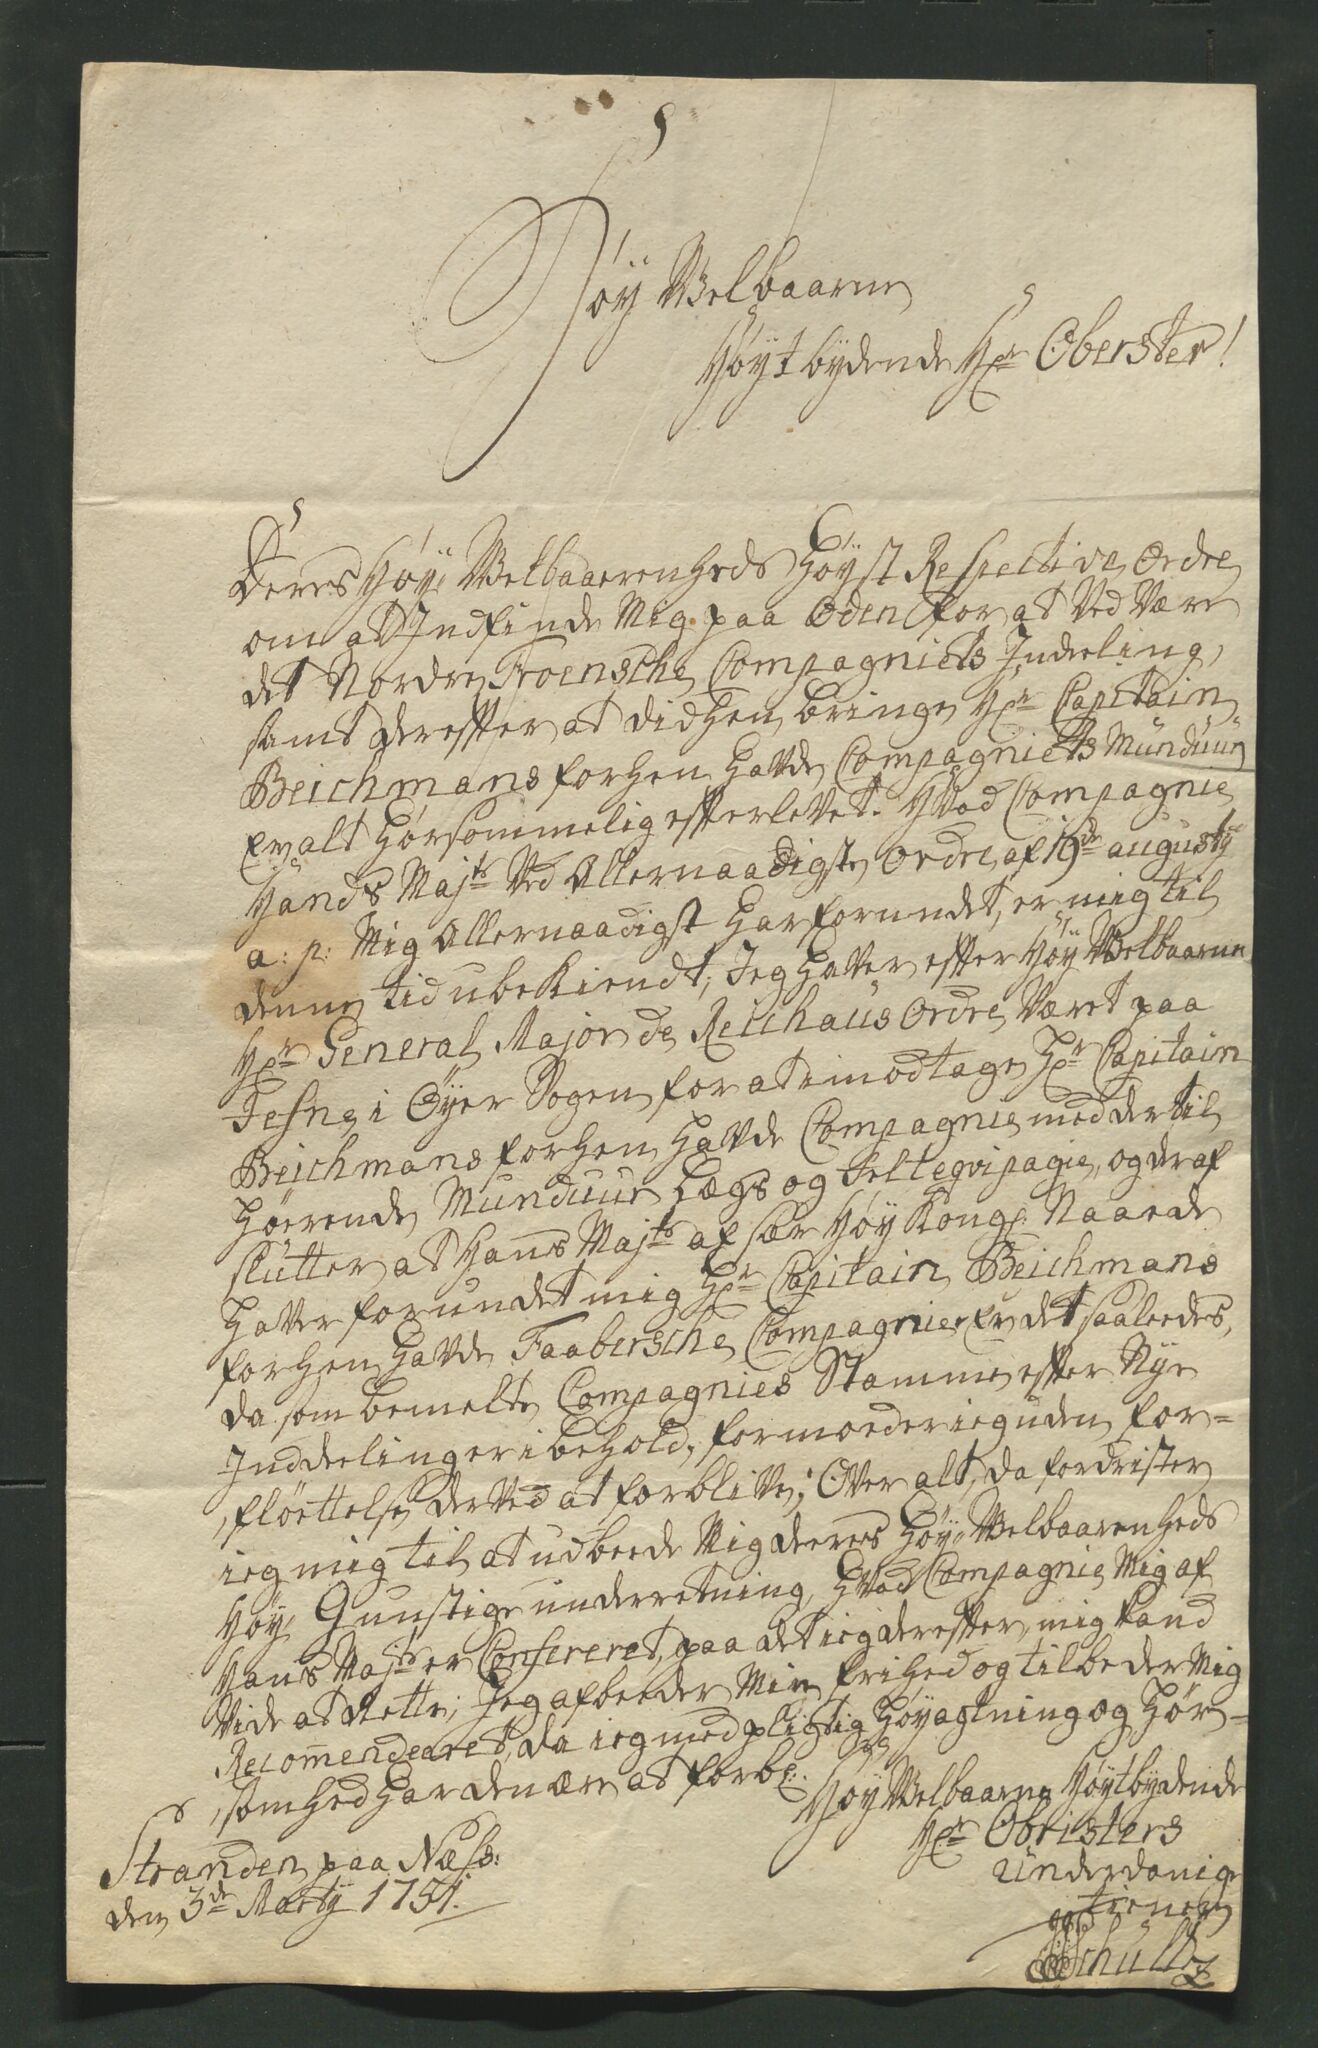 Høy Welbaarne
Høytbydende Hr Oberster!
Deres Høy Welbaarenheds Høyst Respective Ordre
om at Indfinde Mig paa Öden for at Ved Være
det Nordre Froensche Compagniets Indeeling,
samt dereffter at didhen bringe Hr Capitain
Beichmans forhen Havde Compagniets Munduur
Er alt Hørsommelig effterlevet. Hvad Compagnie
Hands Majts Ved Allernaadigste Ordre af 19de augusty
a: p: Mig Allernaadigst Har forundet, er mig til
denne tid ubekiendt, Jeg Haver effter Høy Welbaarne
Hr General Major de Reichaus Ordre Været paa
Jesne i Öyer Sogen for at imodtage Hr Capitain
Beichmans forhen Havde Compagnie med dertil
Høerende Munduur Lægs og feltegvipagie, og deraf
slutter at Hans Majts af sær Høy Kongl. Naade
Haver forundet mig Hr Capitain Beichmans
forhen Havde Faabersche Compagnie, Er det saaleedes,
da som bemelte Compagnies Stamme effter Nye
Inddeelinger i behold, formoeder ieg uden for=
fløettelse derved at forblive; Over alt, da fordrister
ieg mig til at udbeede Mig deeres Høy Welbaarenheds
Høy Gunstige underretning, Hvad Compagnie Mig af
Hans Majts er Confereret, paa det ieg dereffter mig kand
Vide at Rette; Jeg afbeeder Min frihed og tilbeder Mig
Recom̄enderet, da ieg med pligtig Høyagtning og Hør-
somhed Har den ære at forbl:
Høy Welbaarne Høytbydende
Hr Obristers
Underdanige
tiener
Schultz
Stranden paa Næss:
den 3de Marty 1751.